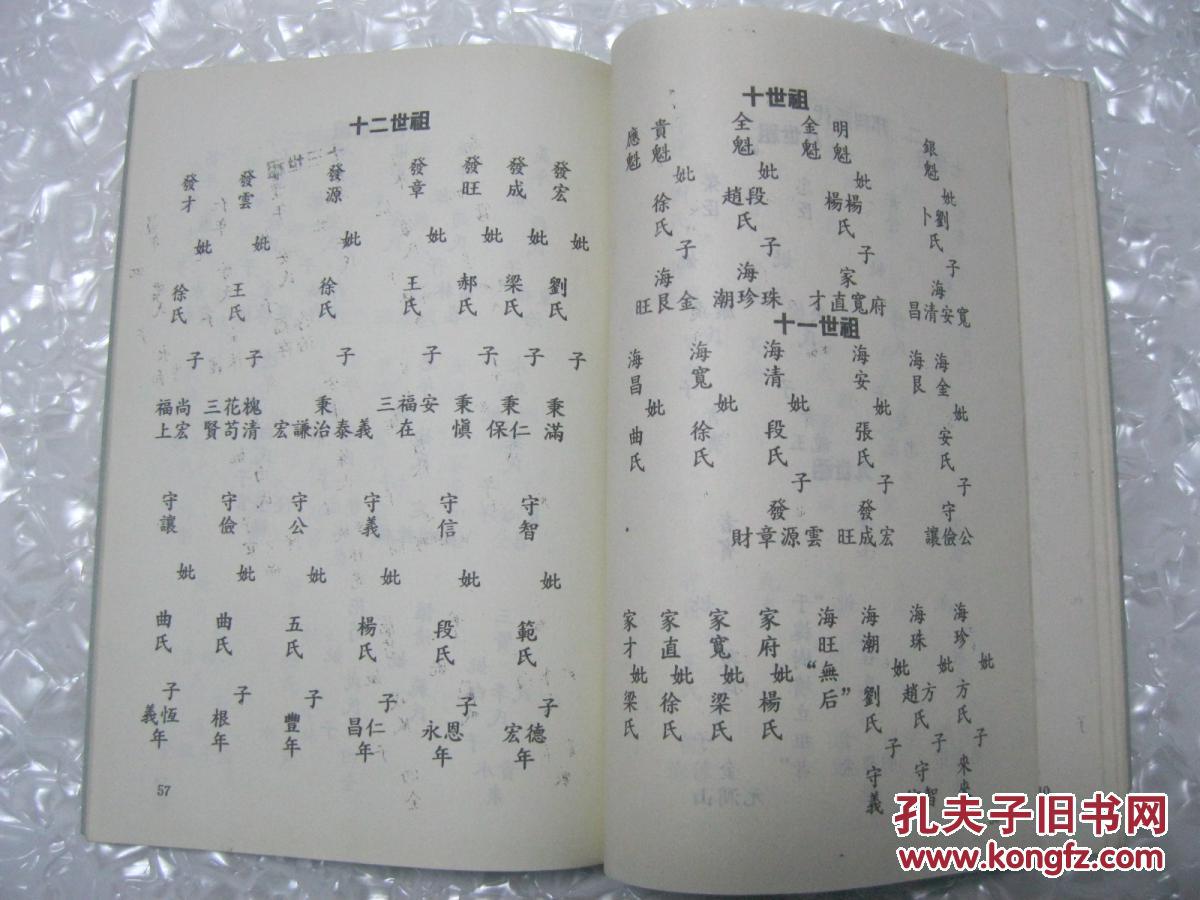 十世祖
銀魁 妣劉氏卜 子海寬安清昌
明魁 妣楊氏 子家府寬直才
金魁 楊
全魁 妣段氏趙 子海珠珍潮
貴魁 妣徐氏 子海金艮旺
應魁
十一世祖
海金 妣安氏 子守公儉讓
海艮
海安 妣張氏 子發宏成旺
海清 妣段氏 發雲源章財
海寬 妣徐氏
海昌 妣曲氏
海珍 妣方氏 子來
海珠 妣方氏趙 子守智
海潮 妣劉氏 子守義
海旺“無后”
家府 妣楊氏
家寬 妣梁氏
家直 妣徐氏
家才 妣梁氏
十二世祖
發宏 妣 劉氏 子 秉滿
發成 妣 梁氏 子 秉仁保
發旺 妣 郝氏 子 秉慎
發章 妣 王氏 子 安福三在
發源 妣 徐氏 子 秉義泰治謙宏
發雲 妣 王氏 子 槐花三清苟賢
發才 妣 徐氏 子 尚福宏上
守智 妣 範氏 子德宏年
守信 妣 段氏 子恩永年
守義 妣 楊氏 子仁昌年
守公 妣 五氏 子豐年
守儉 妣 曲氏 子根年
守讓 妣 曲氏 子恆義年
57
孔夫子旧书网
www.kongfz.com